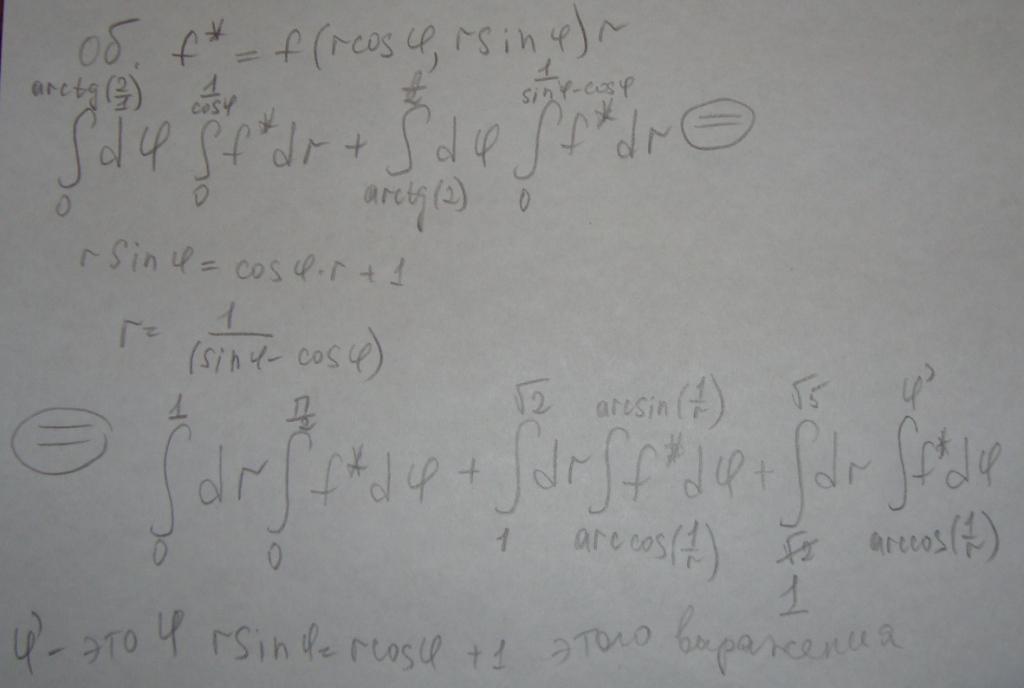 Об. f* = f(r cos φ, r sin φ) r
∫₀^{arctg(2/1)} dφ ∫₀^{1/cos φ} f* dr + ∫_{arctg(2)}^{π/2} dφ ∫₀^{1/(sin φ - cos φ)} f* dr =
r sin φ = cos φ · r + 1
r = 1/(sin φ - cos φ)
= ∫₀^1 dr ∫₀^{π/2} f* dφ + ∫₁^{√2} dr ∫_{arccos(1/r)}^{arcsin(1/r)} f* dφ + ∫₁^{√5} dr ∫_{arccos(1/r)}^{φ'} f* dφ
φ' - это φ r sin φ = r cos φ + 1 этого выражения